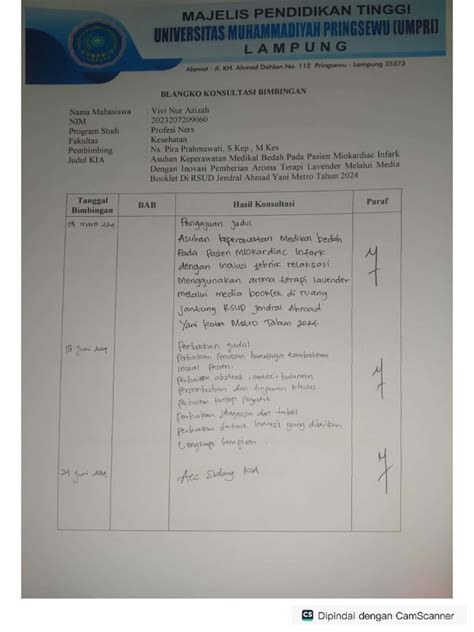 MAJELIS PENDIDIKAN TINGGI
UNIVERSITAS MUHAMMADIYAH PRINGSEWU (UMPRI)
LAMPUNG
Alamat : Jl. KH. Ahmad Dahlan No. 112 Pringsewu - Lampung 35373
BLANGKO KONSULTASI BIMBINGAN
Nama Mahasiswa : Vivi Nur Azizah
NIM : 2023207209060
Program Studi : Profesi Ners
Fakultas : Kesehatan
Pembimbing : Ns. Pira Prahmawati, S.Kep., M.Kes
Judul KIA : Asuhan Keperawatan Medikal Bedah Pada Pasien Miokardiac Infark
Dengan Inovasi Pemberian Aroma Terapi Lavender Melalui Media
Booklet Di RSUD Jendral Ahmad Yani Metro Tahun 2024
Tanggal Bimbingan BAB Hasil Konsultasi Paraf
Pengajuan judul
Asuhan keperawatan Medikal bedah
Pada Pasien Miokardiac Infark
dengan Inovasi tehnik relaksasi
Menggunakan aroma terapi lavender
melalui media booklet di ruang
Jantung RSUD Jendral Ahmad
Yani Kota Metro Tahun 2024.
18 Juni 2024 Perbaikan judul
Perbaikan Penulisan
inisial Pasien
Perbaikan abstrak, halaman
Persembahan dan tinjauan khusus
Perbaikan konsep
Perbaikan diagnosa dan tabel
Perbaikan terkait inovasi yang diberikan
Lengkapi lampiran
24 Juni 2024 Acc Sidang KIA
CS Dipindai dengan CamScanner